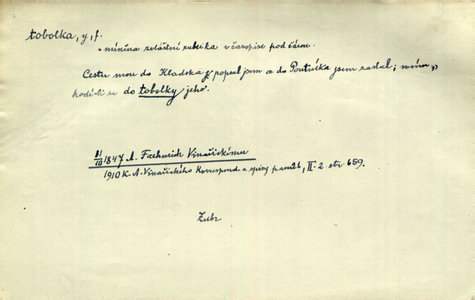 tobolka, y, f.
- míněna zvláštní rubrika v časopise pod čarou.
Cestu mou do Kladska popsal jsem a do Poutníka jsem zaslal;
hodí-li se do tobolky jeho.
31/10 1847 A. Vinařickému
1910 K. A. Vinařického Korrespond. a spisy pamět, II. 2 str 659.
Zubr